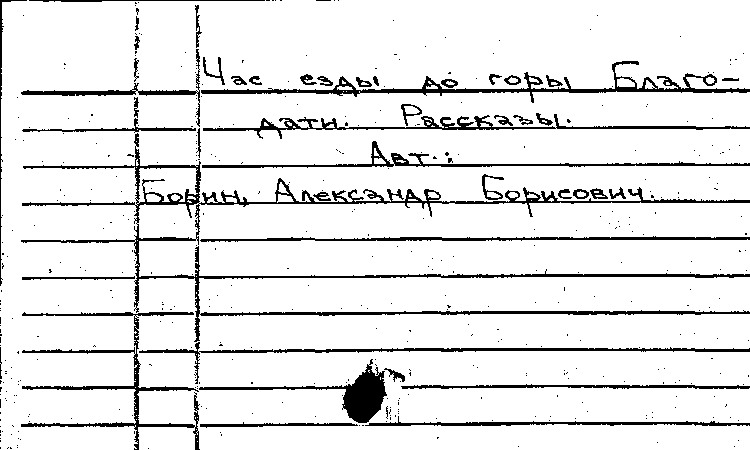 Час езды до горы Благо-
дати. Рассказы.
Авт.:
Борин, Александр Борисович.